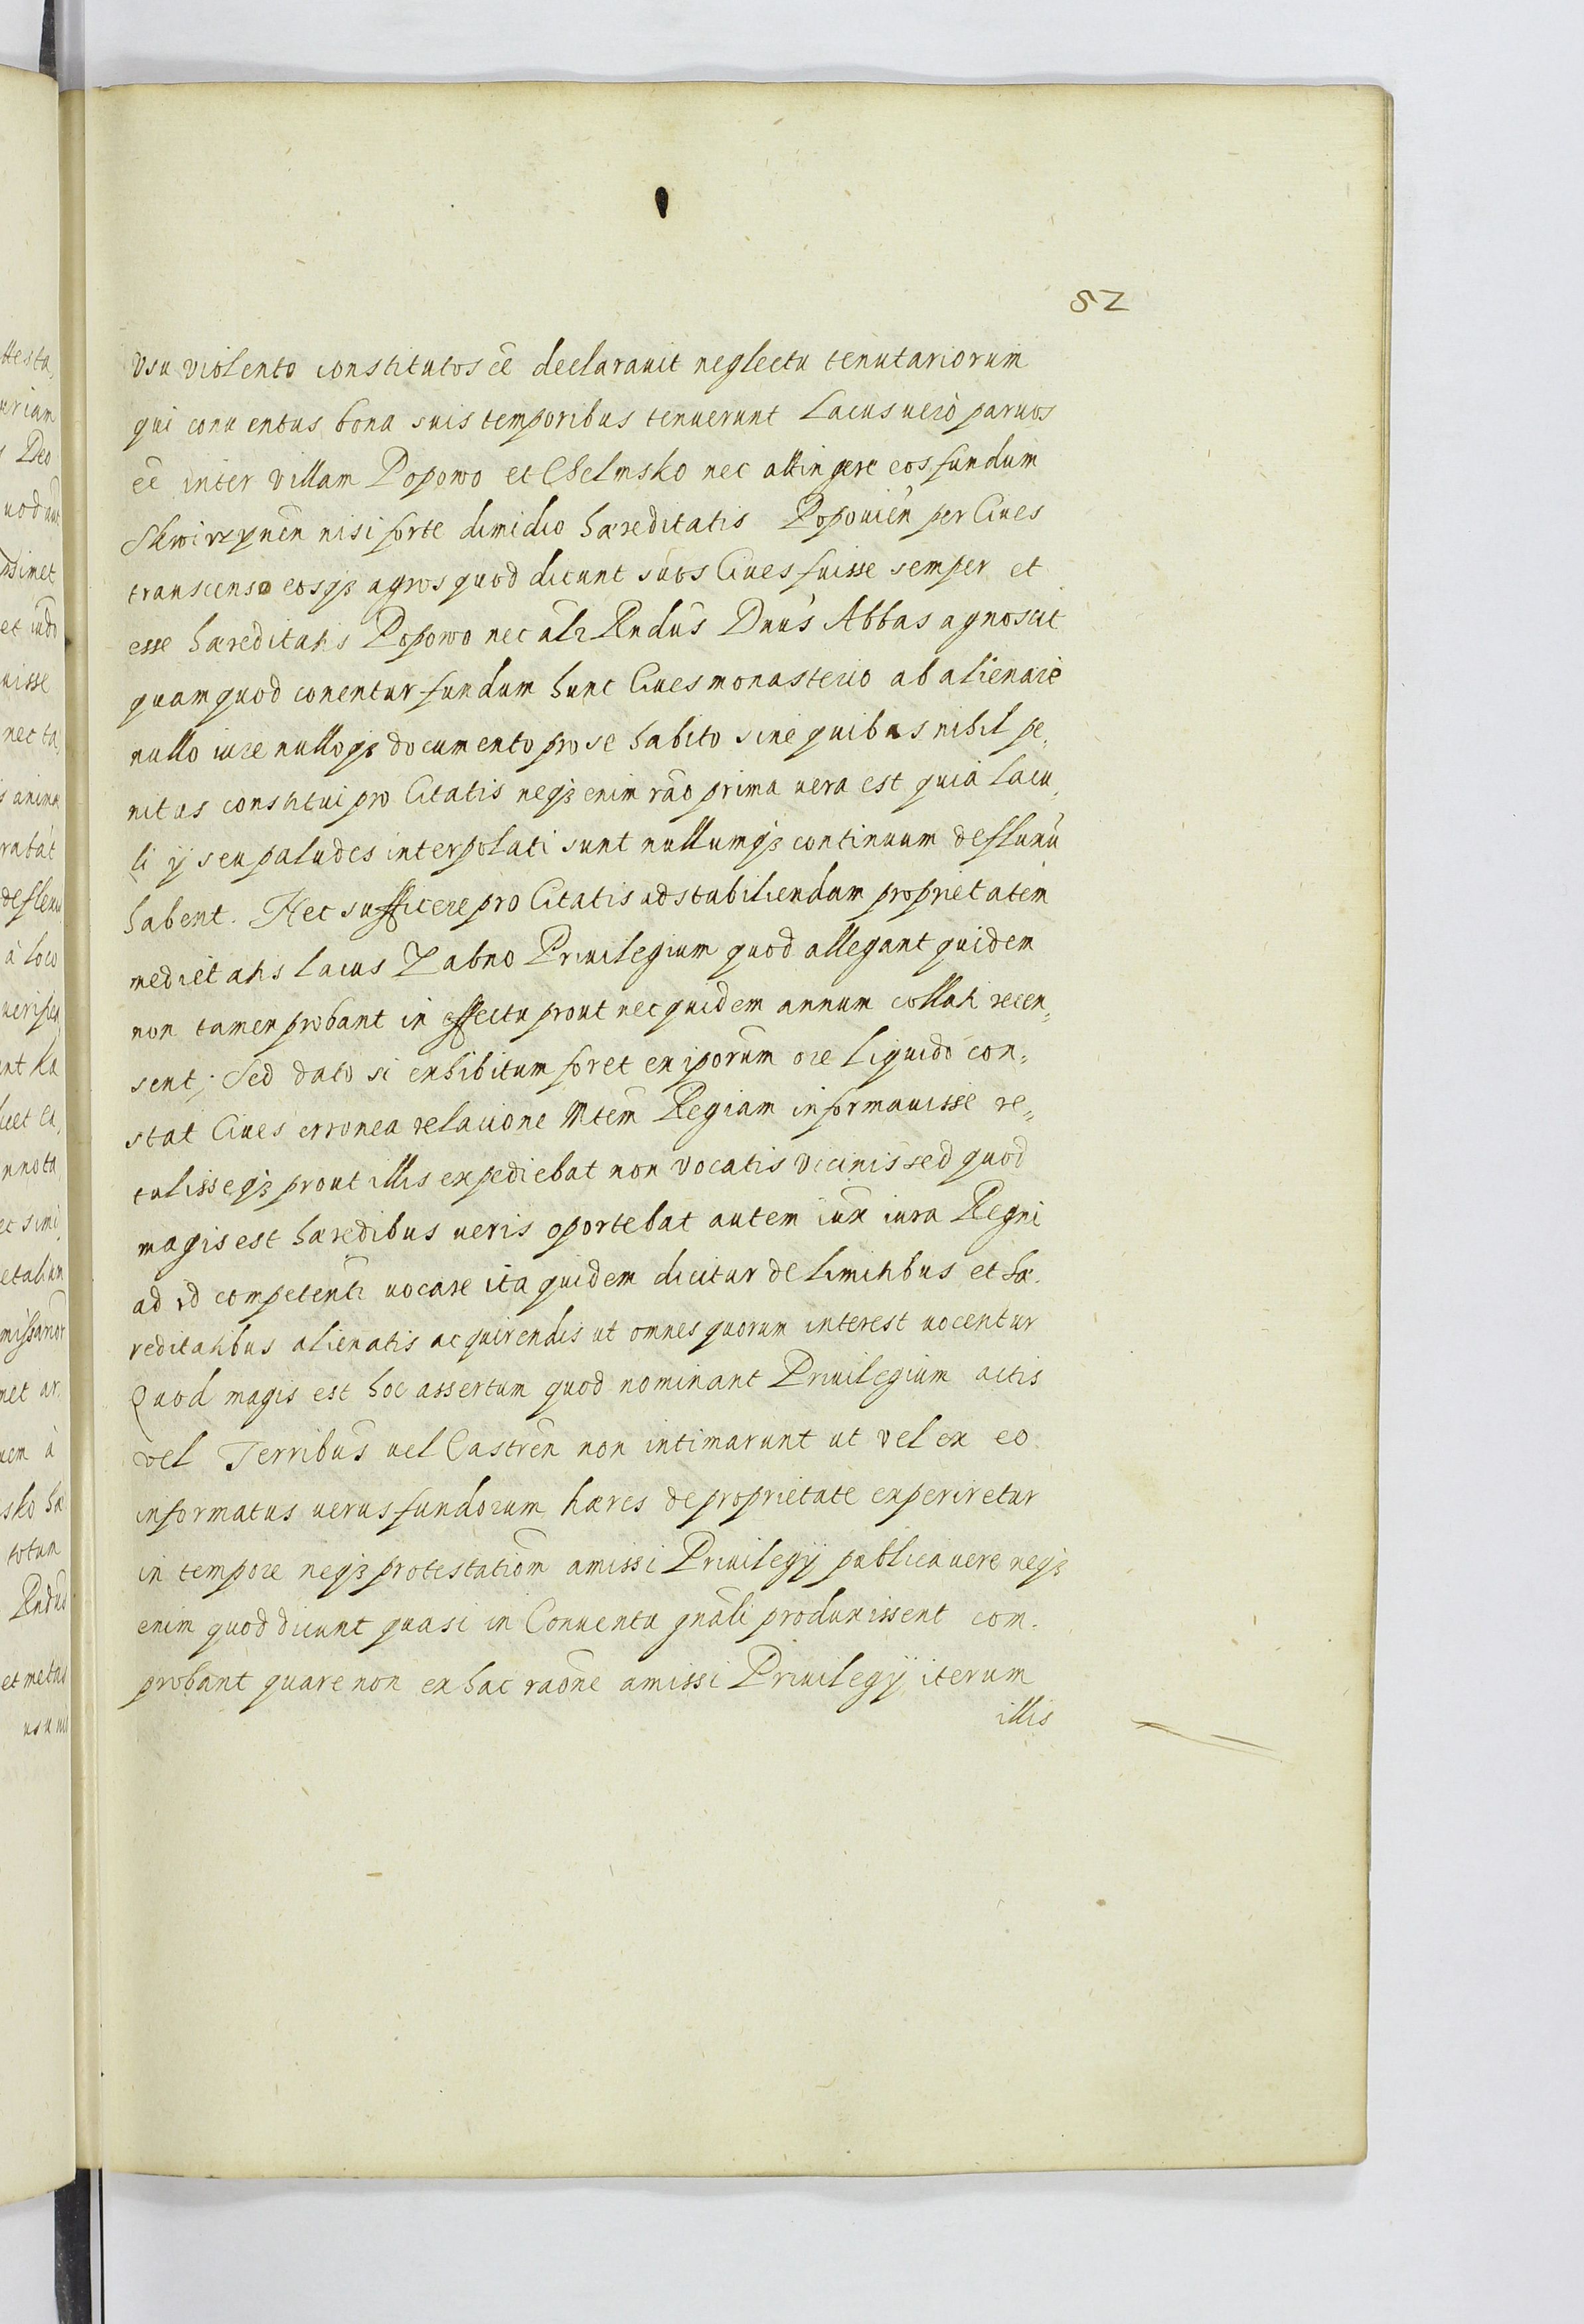 82
Vsu violento constitutos eē declarauit neglectu tenutariorum
qui conuentus bona suis temporibus tenuerunt Lacus uerò paruos
eē inter villam Popowo et Chelmsko nec attingere eos fundum
Skwirzynēn nisi forte dimidio hæreditatis Popouiēn per Ciues
transcenso eosqȝ agros quod dicunt suos Ciues fuisse semper et
esse hæreditatis Popowo nec alr Rndus Dnus Abbas agnoscit
quam quod conentur fundum hunc Ciues monasterio abalienare
nullo iure nulloqȝ documento pro se habito sine quibus nihil pe„
nitus constitui pro Citatis neqȝ enim rao prima uera est quia lacu„
li ij seu paludes interpolati sunt nullumqȝ continuum defluxū
habent. Nec sufficere pro Citatis ad stabiliendam proprietatem
medietatis lacus Zabno Priuilegium quod allegant quidem
non tamen probant in effectu prout nec quidem annum collati recen„
sent; Sed dato si exhibitum foret ex iporum ore liquido con„
stat Ciues erronea relatione Mtem Regiam informauisse re„
tulisseqȝ prout illis expediebat non vocatis vicinis sed quod
magis est hæredibus ueris oportebat autem iux iura Regni
ad id competenti uocare ita quidem dicitur de limitibus et hæ.
reditatibus alienatis acquirendis ut omnes quorum interest uocentur
Quod magis est hoc assertum quod nominant Priuilegium actis
vel Terribus uel Castren non intimarunt ut vel ex eo
informatus uerus fundorum hæres de proprietate experiretur
in tempore neqȝ protestationē amissi Priuilegij publicauere neqȝ
enim quod dicunt quasi in Conuentu gnali produxissent com.
probant quare non ex hac raone amissi Priuilegij iterum
illis